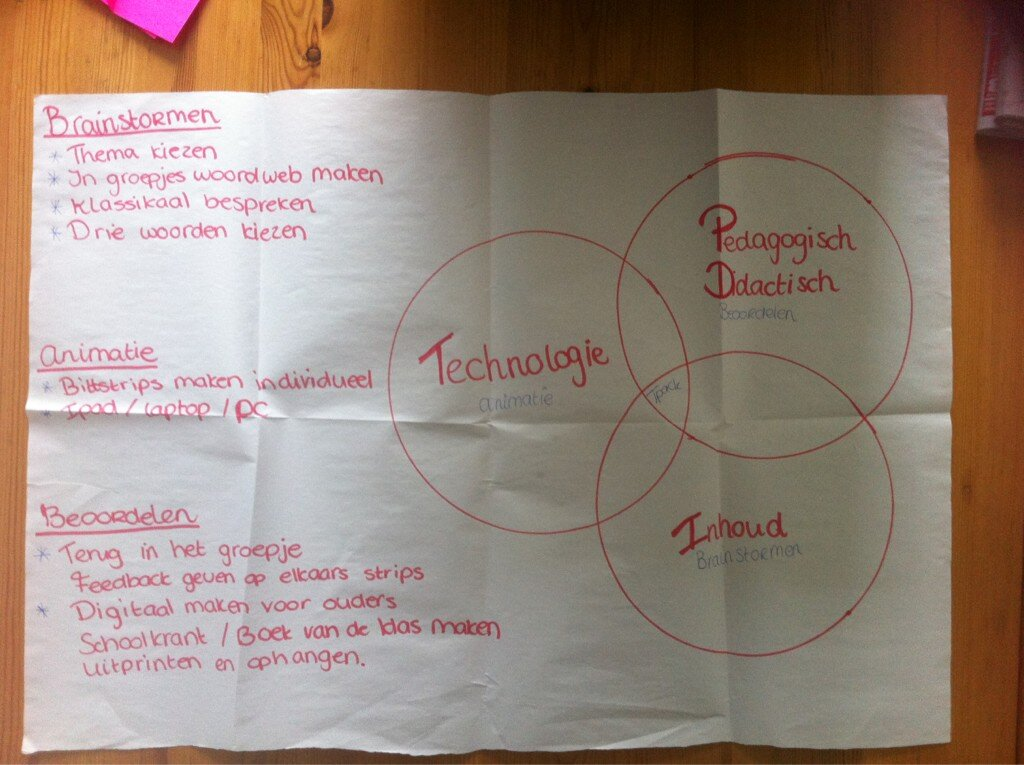 Brainstormen
* Thema kiezen
* In groepjes woordweb maken
* Klassikaal bespreken
* Drie woorden kiezen
Animatie
* Bitstrips maken individueel
* Ipad / laptop / PC
Beoordelen
* Terug in het groepje
Feedback geven op elkaars strips
* Digitaal maken voor ouders
Schoolkrant / Boek van de klas maken
uitprinten en ophangen.
Technologie
animatie
Pedagogisch
Didactisch
Beoordelen
Tpack
Inhoud
Brainstormen